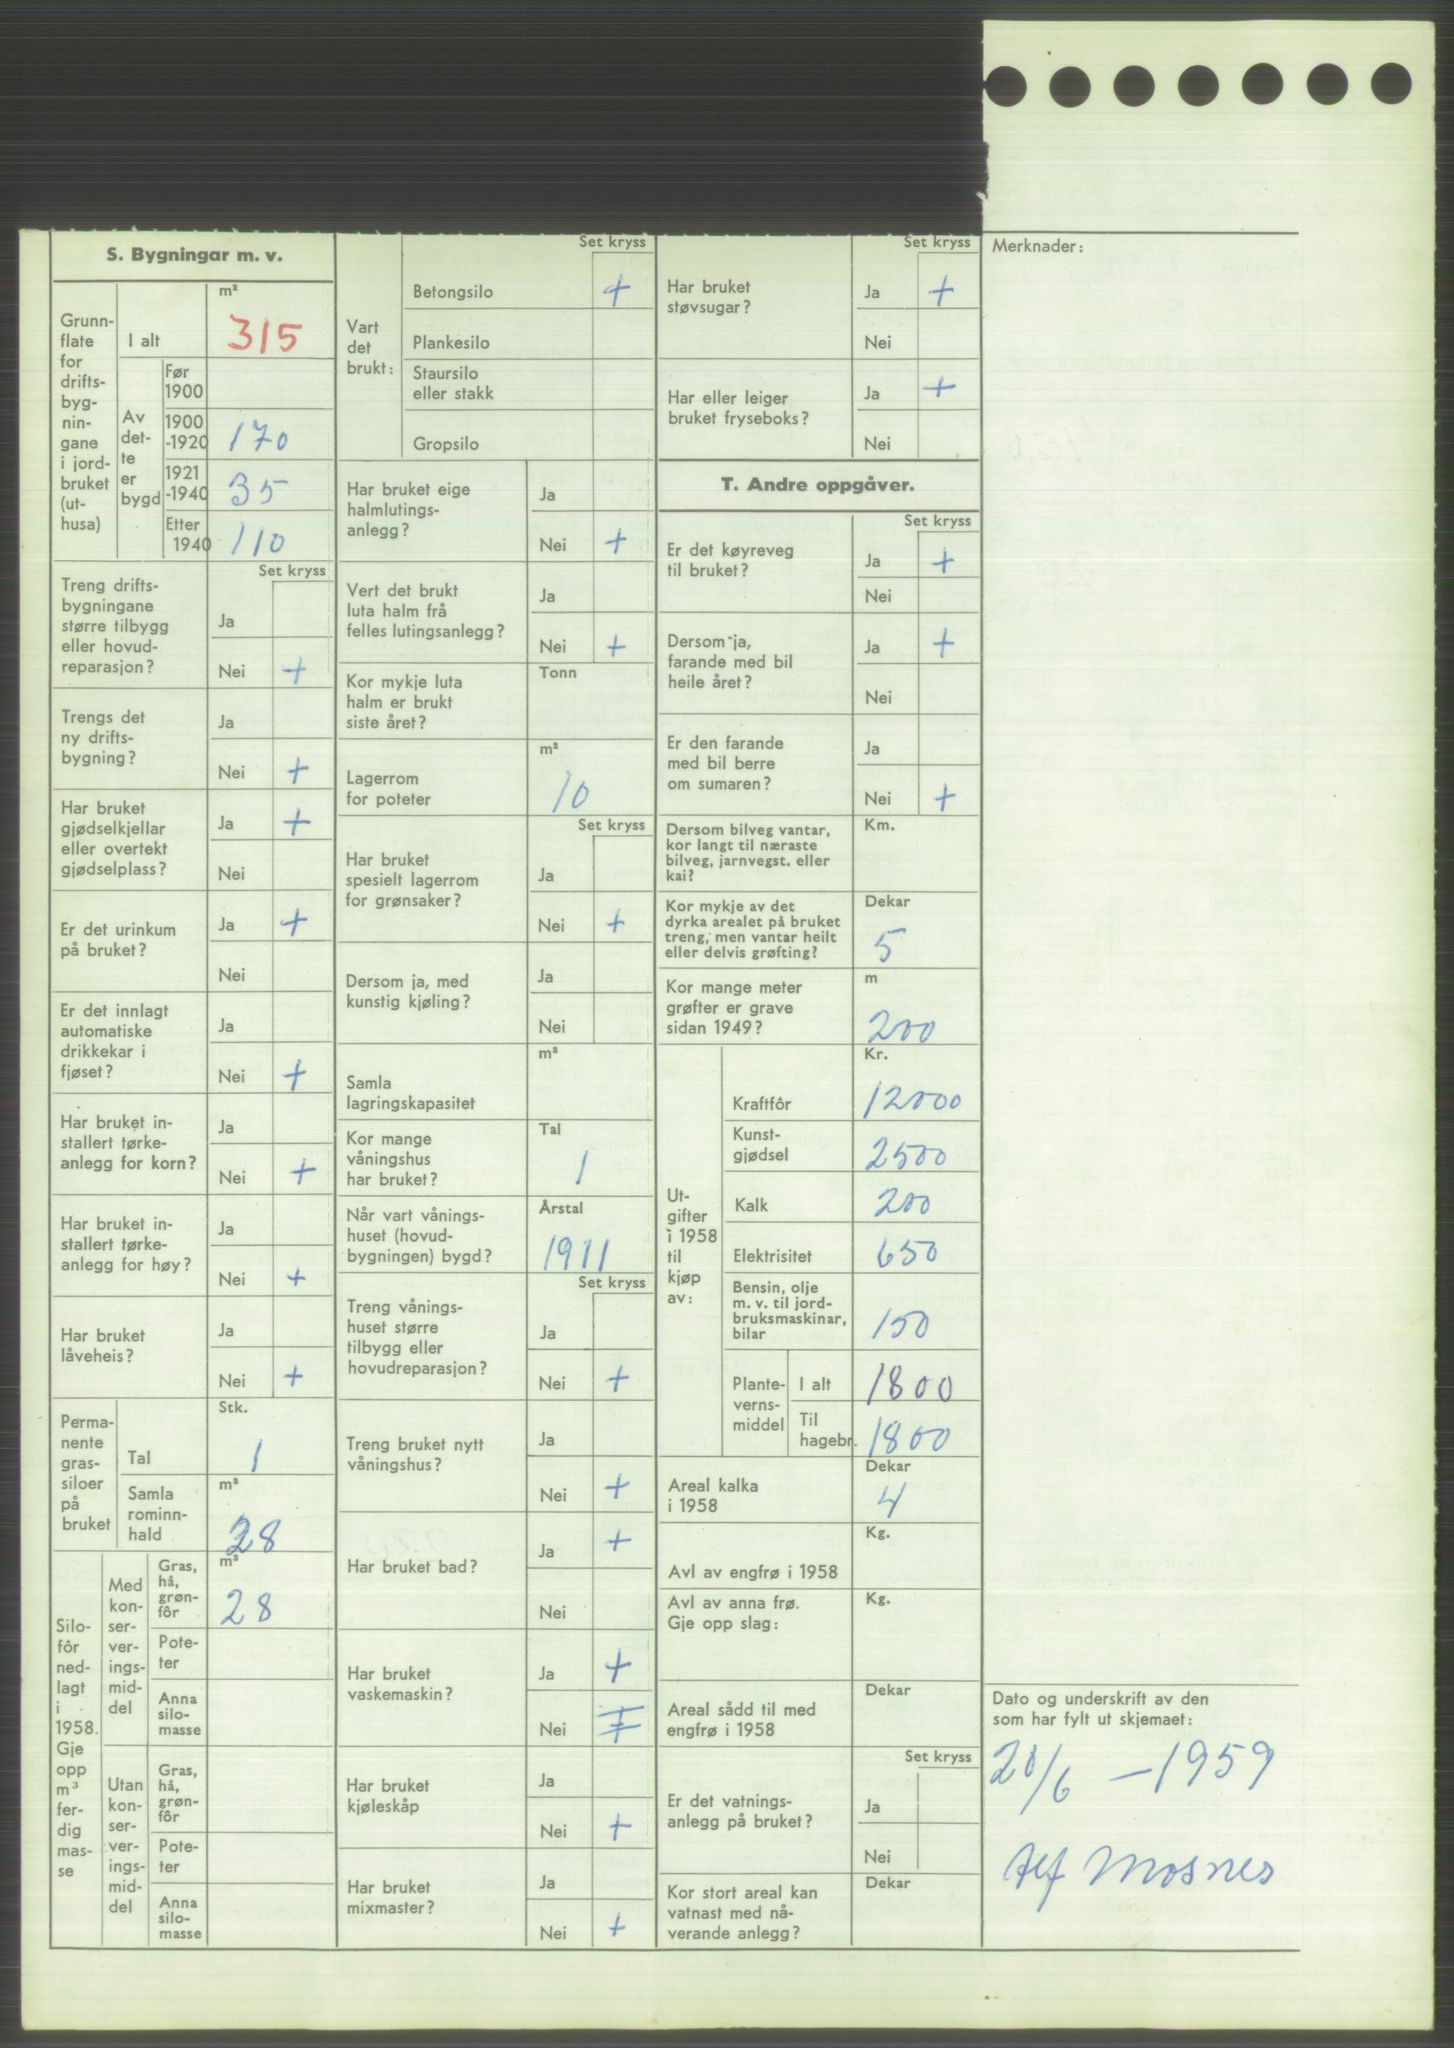 S. Bygningar m. v.
Grunn-
flate
for
drifts-
byg-
nin-
gane
i jord-
bruket
(ut-
husa)
I alt
m²
315
Av
det-
te
er
bygd
Før
1900
1900
-1920
170
1921
-1940
35
Etter
1940
110
Set kryss
Treng drifts-
bygningane
større tilbygg
eller hovud-
reparasjon?
Ja
Nei +
Trengs det
ny drifts-
bygning?
Ja
Nei +
Har bruket
gjødselkjellar
eller overtekt
gjødselplass?
Ja +
Nei
Er det urinkum
på bruket?
Ja +
Nei
Er det innlagt
automatiske
drikkekar i
fjøset?
Ja
Nei +
Har bruket in-
stallert tørke-
anlegg for korn?
Ja
Nei +
Har bruket in-
stallert tørke-
anlegg for høy?
Ja
Nei +
Har bruket
låveheis?
Ja
Nei +
Perma-
nente
gras-
siloer
på
bruket
Tal
Stk.
1
Samla
rominn-
hald
m³
28
Silo-
fôr
ned-
lagt
i
1958.
Gje
opp
m³
fer-
dig
mas-
se
Med
kon-
ser-
ver-
ings-
mid-
del
Gras,
hå,
grøn-
fôr
m³
28
Pote-
ter
Anna
silo-
masse
Utan
kon-
ser-
ver-
ings-
mid-
del
Gras,
hå,
grøn-
fôr
Pote-
ter
Anna
silo-
masse
Vart
det
brukt:
Set kryss
Betongsilo +
Plankesilo
Staursilo
eller stakk
Gropsilo
Har bruket eige
halmlutings-
anlegg?
Ja
Nei +
Vert det brukt
luta halm frå
felles lutingsanlegg?
Ja
Nei +
Kor mykje luta
halm er brukt
siste året?
Tonn
Lagerrom
for poteter
m²
10
Set kryss
Har bruket
spesielt lagerrom
for grønsaker?
Ja
Nei +
Dersom ja, med
kunstig kjøling?
Ja
Nei
Samla
lagringskapasitet
m³
Kor mange
våningshus
har bruket?
Tal
1
Når vart vånings-
huset (hovud-
bygningen) bygd?
Årstal
1911
Set kryss
Treng vånings-
huset større
tilbygg eller
hovudreparasjon?
Ja
Nei +
Treng bruket nytt
våningshus?
Ja
Nei +
Har bruket bad?
Ja +
Nei
Har bruket
vaskemaskin?
Ja +
Nei +
Har bruket
kjøleskåp
Ja
Nei +
Har bruket
mixmaster?
Ja
Nei +
Set kryss
Har bruket
støvsugar?
Ja +
Nei
Har eller leiger
bruket fryseboks?
Ja +
Nei
T. Andre oppgåver.
Set kryss
Er det køyreveg
til bruket?
Ja +
Nei
Dersom ja,
farande med bil
heile året?
Ja +
Nei
Er den farande
med bil berre
om sumaren?
Ja
Nei +
Dersom bilveg vantar,
kor langt til næraste
bilveg, jarnvegst. eller
kai?
Km.
Kor mykje av det
dyrka arealet på bruket
treng, men vantar heilt
eller delvis grøfting?
Dekar
5
Kor mange meter
grøfter er grave
sidan 1949?
m
200
Ut-
gifter
i 1958
til
kjøp
av:
Kr.
Kraftfôr 12000
Kunst-
gjødsel 2500
Kalk 200
Elektrisitet 650
Bensin, olje
m. v. til jord-
bruksmaskinar,
bilar
150
Plante-
verns-
middel
I alt 1800
Til
hagebr. 1800
Areal kalka
i 1958
Dekar
4
Avl av engfrø i 1958
Kg.
Avl av anna frø.
Gje opp slag:
Kg.
Areal sådd til med
engfrø i 1958
Dekar
Set kryss
Er det vatnings-
anlegg på bruket?
Ja
Nei
Kor stort areal kan
vatnast med nå-
verande anlegg?
Dekar
Merknader:
Dato og underskrift av den
som har fylt ut skjemaet:
20/6 - 1959
Alf Mosnes